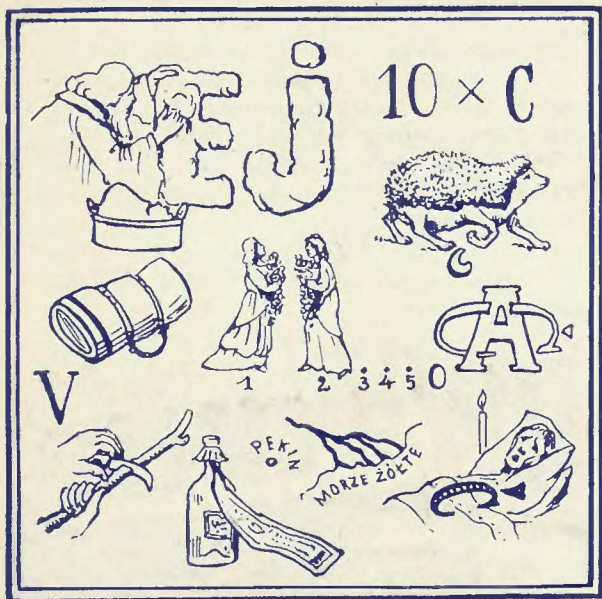 E J
10 × C
A
1 2 3 4 5 O
V
PEKIN
MORZE ŻÓŁTE